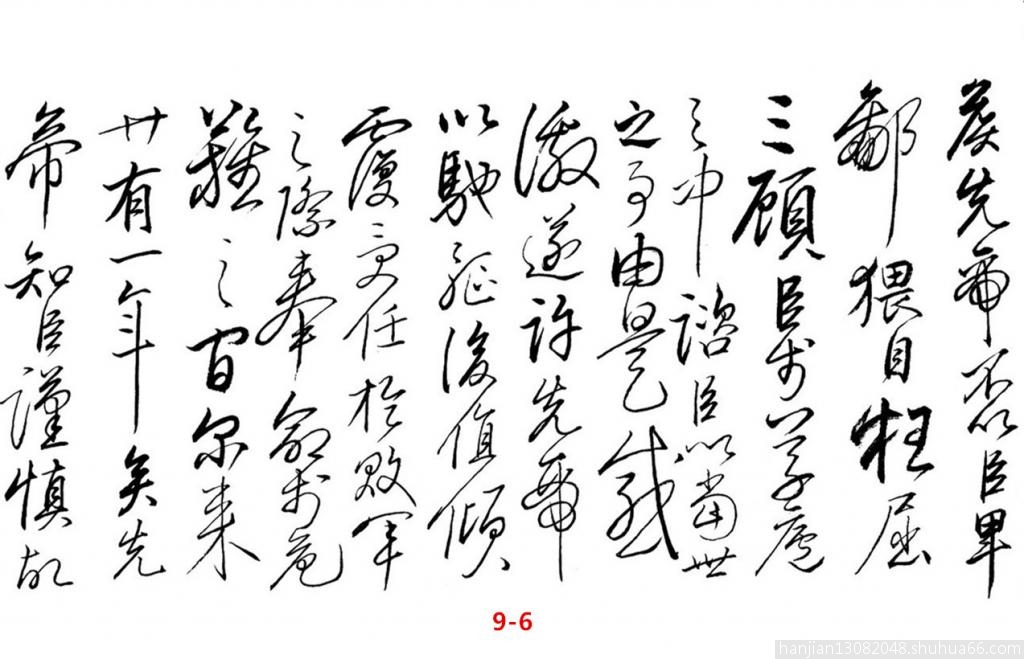 侯先帝不以臣卑
鄙猥自枉屈
三顧臣於草廬
之中諮臣以當世
之事由是感
激遂許先帝
以馳駈後值傾
覆受任於敗軍
之際奉命於危
難之間尔来
廿有一年矣先
帝知臣謹慎故
9-6
hanjian13082048.shuhua66.com